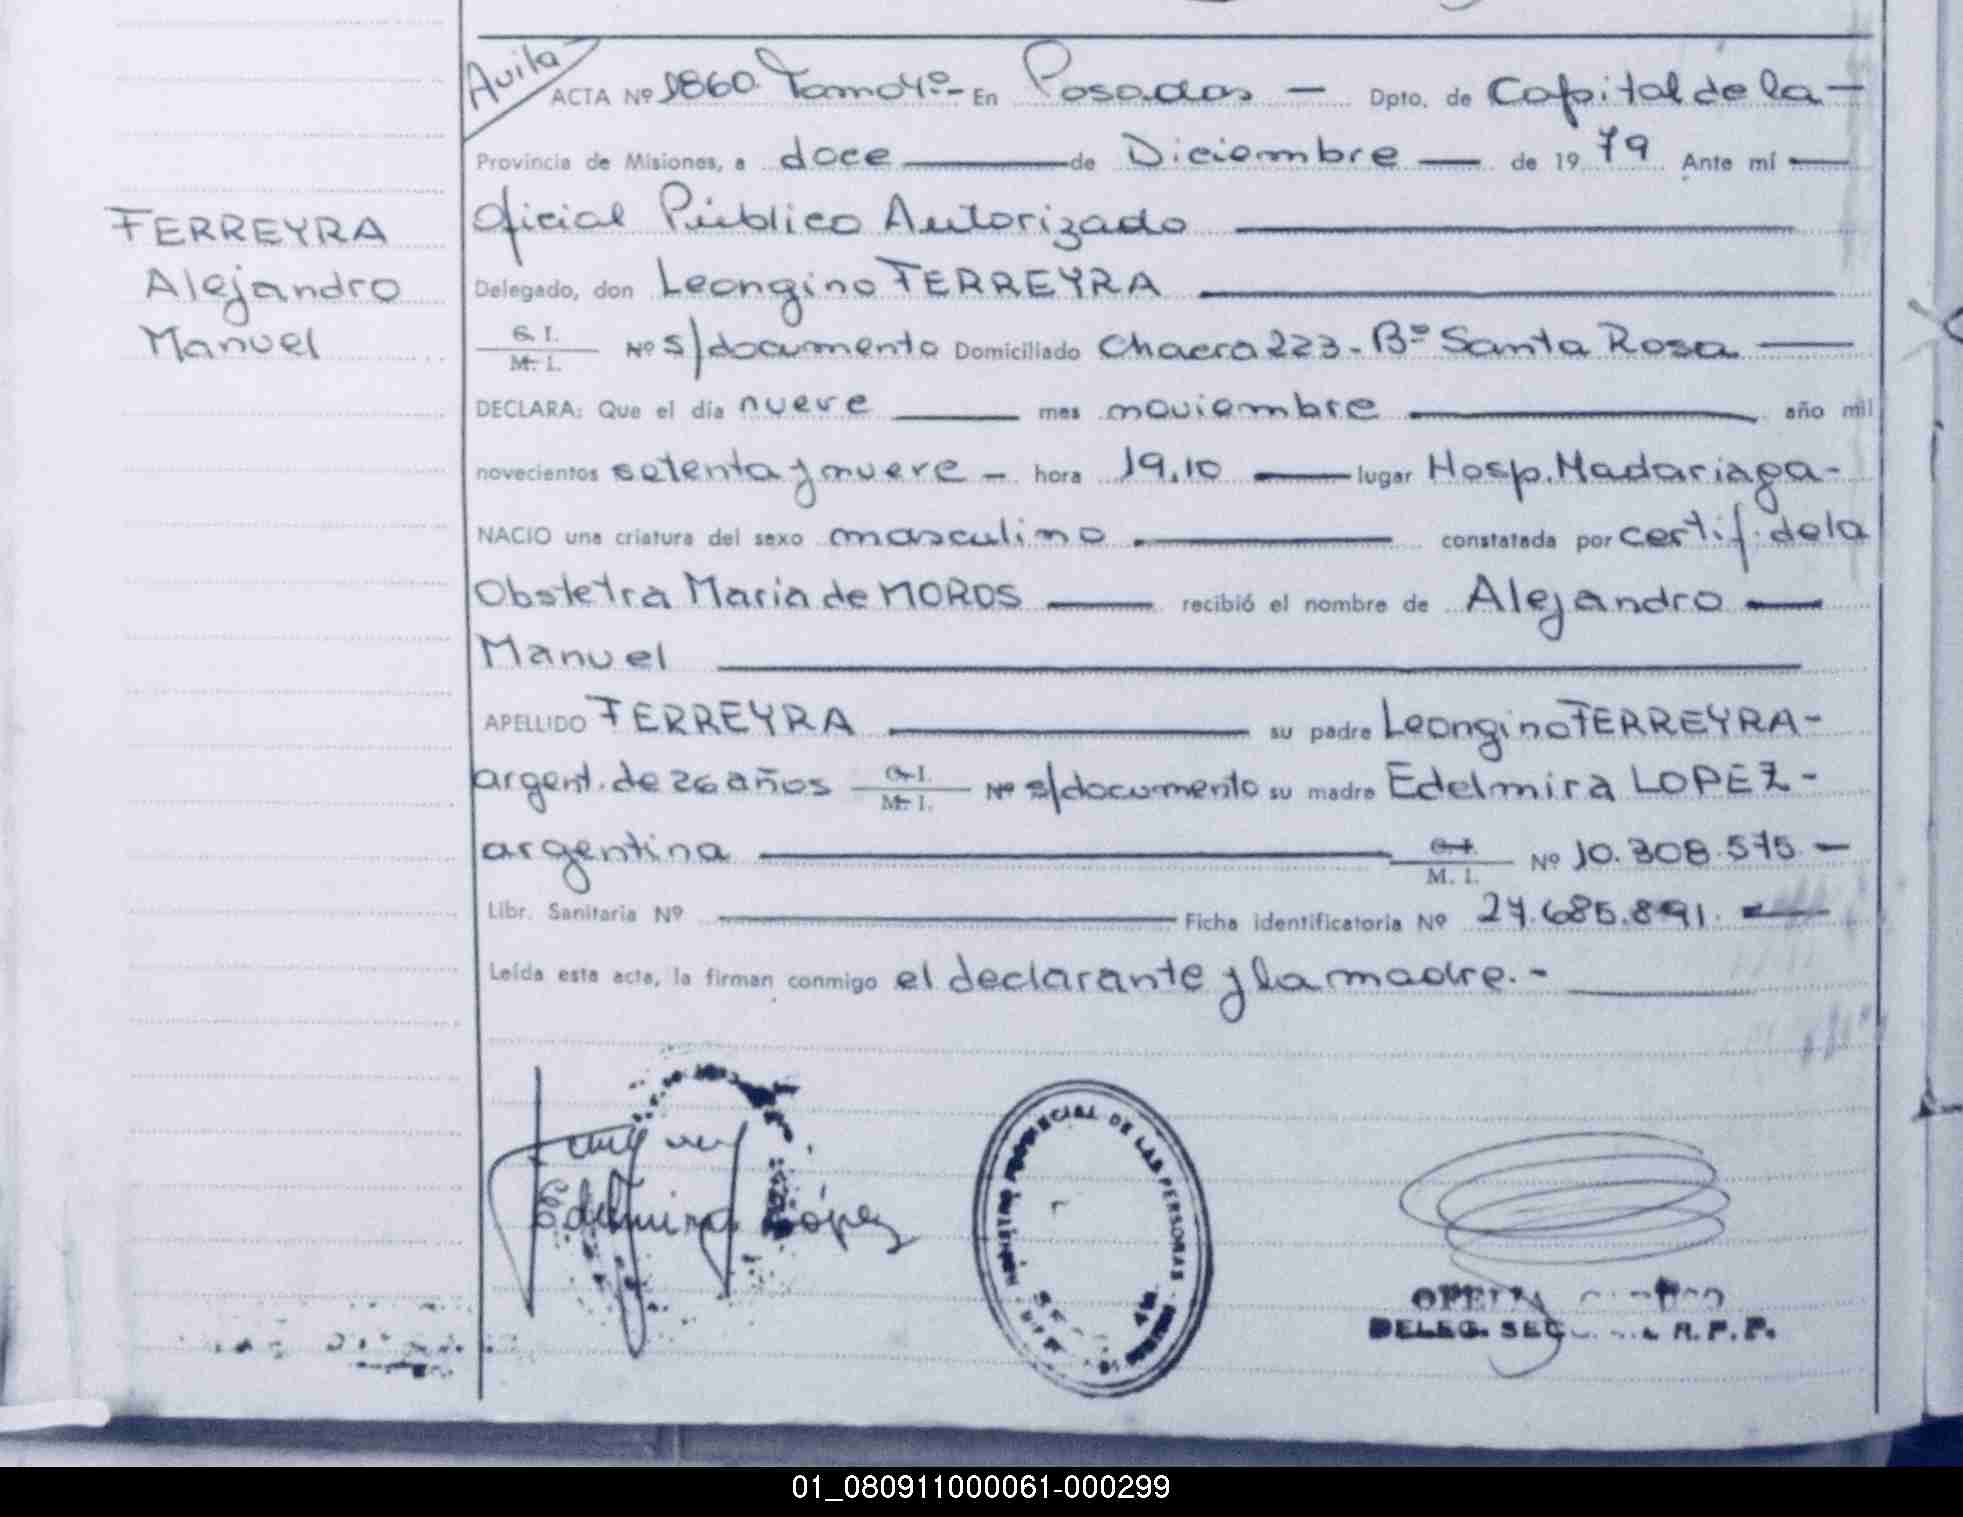 Avila
ACTA Nº 1860. Tomo 4º.- En Posadas — Dpto. de Capital de la —
Provincia de Misiones, a doce — de Diciembre — de 19 79 Ante mí —
Oficial Público Autorizado —
FERREYRA
Alejandro
Manuel
Delegado, don Leongino FERREYRA —
C. I.
M. I.
Nº s/documento Domiciliado Chacra 223 - Bº Santa Rosa —
DECLARA: Que el día nueve — mes noviembre — año mil
novecientos setenta y nueve — hora 19.10 — lugar Hosp. Madariaga -
NACIO una criatura del sexo masculino — constatada por certif. de la
Obstetra Maria de MOROS — recibió el nombre de Alejandro —
Manuel —
APELLIDO FERREYRA — su padre Leongino FERREYRA -
argent. de 26 años C. I.
M. I.
Nº s/documento su madre Edelmira LOPEZ -
argentina — C. I.
M. I.
Nº 10.308.575. —
Libr. Sanitaria Nº — Ficha identificatoria Nº 27.685.891. —
Leída esta acta, la firman conmigo el declarante y la madre. -
Edelmira López
PROVINCIAL DE LAS PERSONAS
DELEG. R. P. P.
01_080911000061-000299